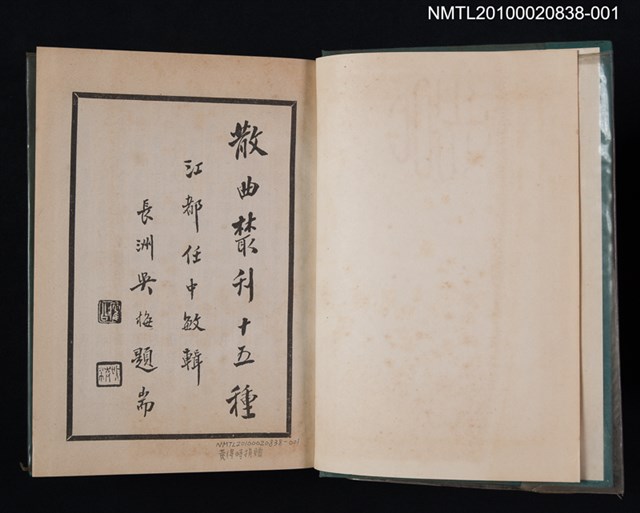 NMTL20100020838-001
散曲叢刊十五種
江都任中敏輯
長洲吳梅題耑
NMTL20100020838-001